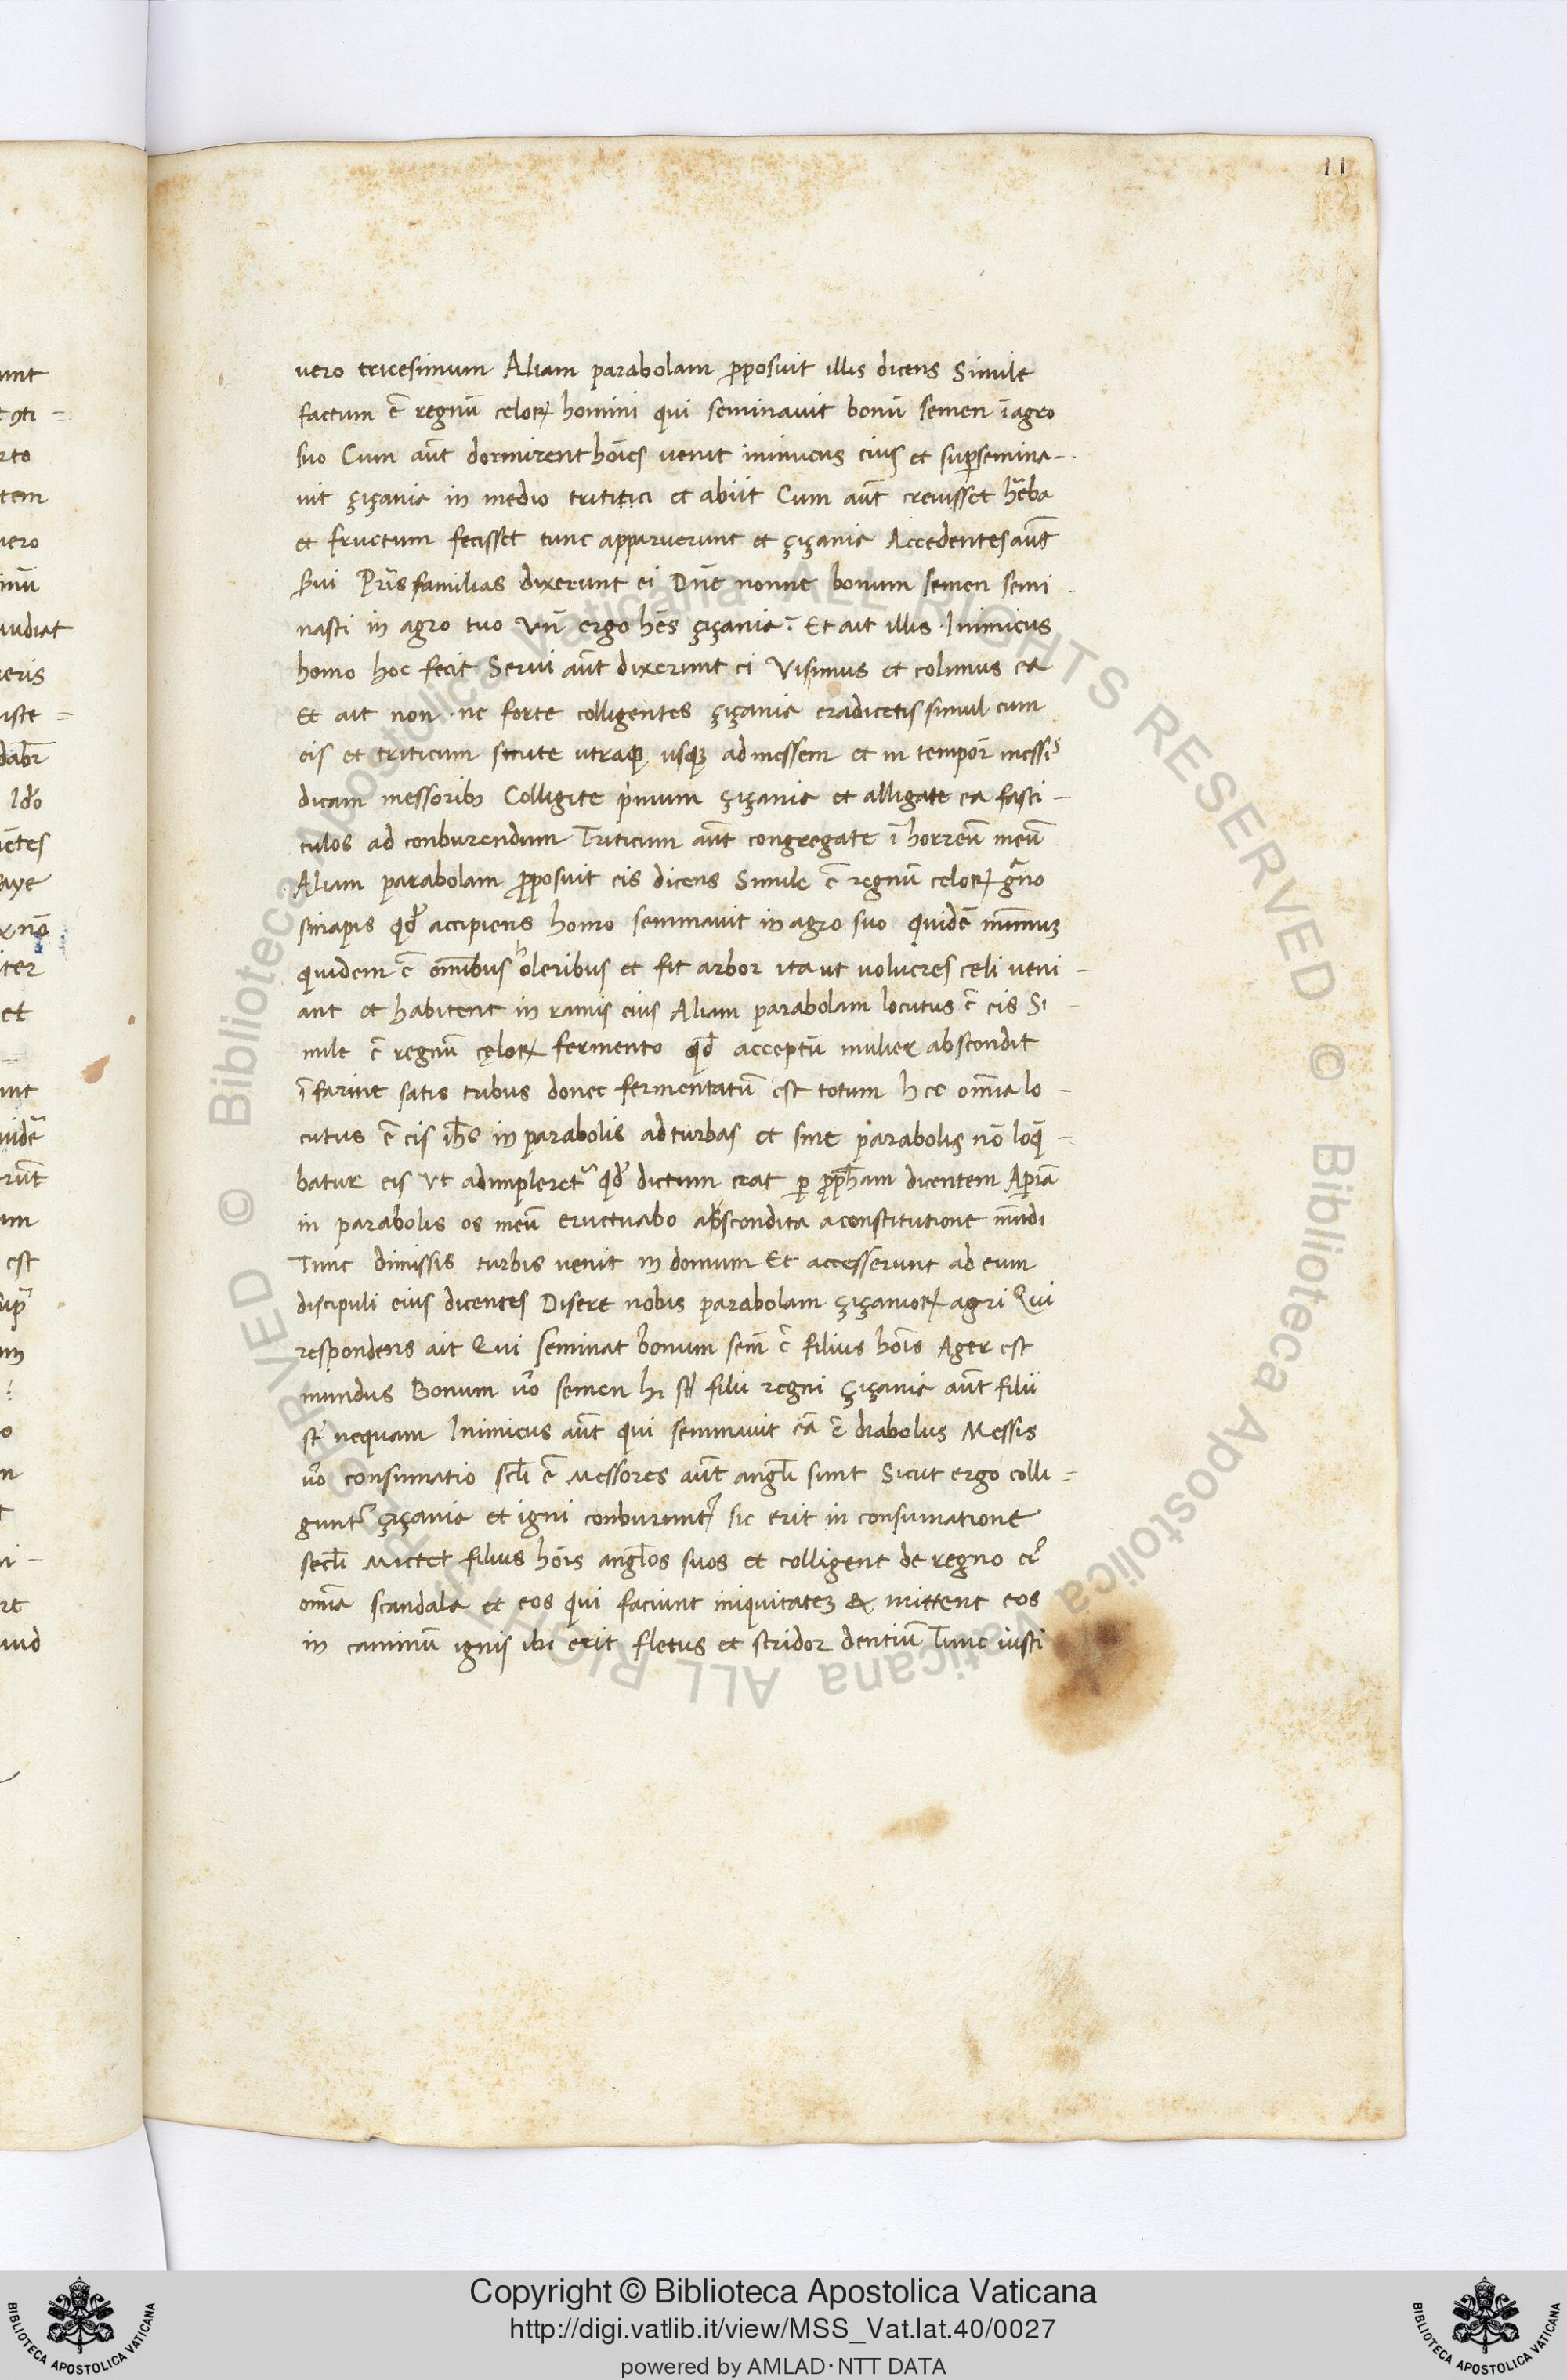 11
vero tricesimum Aliam parabolam ꝓposuit illis dicens Simile
factum ē regnū celoꝝ homini qui seminavit bonū semen ī agro
suo Cum aūt dormirent hoīes venit inimicus eius et suꝑsemina-
vit çiçania in medio trititici et abiit Cum aūt crevisset hēba
et fructum fecisset tunc apparuerunt et çiçania Accedentes aūt
s̄ui Pr̄is familias dixerunt ei Dn̄e nonne bonum semen semi
nasti in agro tuo Vn̄ ergo hēs çiçania? Et ait illis Inimicus
homo hoc fecit Servi aūt dixerunt ei Vis imus et colimus ea
Et ait non ne forte colligentes çiçania eradicetis simul cum
eis et triticum sinite utraqꝫ usqꝫ ad messem et in tempor̄ messis
dicam messoribꝫ Colligite pͥmum çiçania et alligate ea fasci-
culos ad conburendum Triticum aūt congregate ī horreū meū
Aliam parabolam ꝓposuit eis dicens Simile ē regnū celoꝝ gͣno
sinapis qd̄ accipiens homo seminavit in agro suo quidē minimuꝫ
quidem ē om̄ibus holeribus et fit arbor ita ut volucres celi veni-
ant et habitent in ramis eius Aliam parabolam locutus ē eis Si
mile ē regnū cęloꝝ fermento qd̄ acceptū mulier abscondit
ī farine satis tribus donec fermentatū est totum hec om̄ia lo-
cutus ē eis ih̄s in parabolis ad turbas et sine parabolis nō loq̄-
batur eis Ut adimpleretᷣ qd̄ dictum erat ꝑ ꝓph̄am dicentem Aꝑiā
in parabolis os meū eructuabo abscondita a constitutione mūdi
Tunc dimissis turbis venit in domum Et accesserunt ad eum
discipuli eius dicentes Disere nobis parabolam çiçanioꝝ agri Qui
respondens ait Qui seminat bonum sem̄ ē filius hoīs Ager est
mundus Bonum v̄o semen hi st̄ filii regni Çiçania aūt filii
st̄ nequam Inimicus aūt qui seminavit eā ē diabolus Messis
v̄o consumatio sc̄li ē Messores aūt angl̄i sunt Sicut ergo colli=
guntᷣ çiçania et igni conburuntᷣ sic erit in consumatione
secl̄i Mittet filius hoīs angl̄os suos et colligent de regno eiꝰ
om̄ia scandala et eos qui faciunt iniquitateꝫ & mittent eos
in caminū ignis ibi erit fletus et stridor dentiū Tunc iusti
Copyright © Biblioteca Apostolica Vaticana
http://digi.vatlib.it/view/MSS_Vat.lat.40/0027
powered by AMLAD·NTT DATA